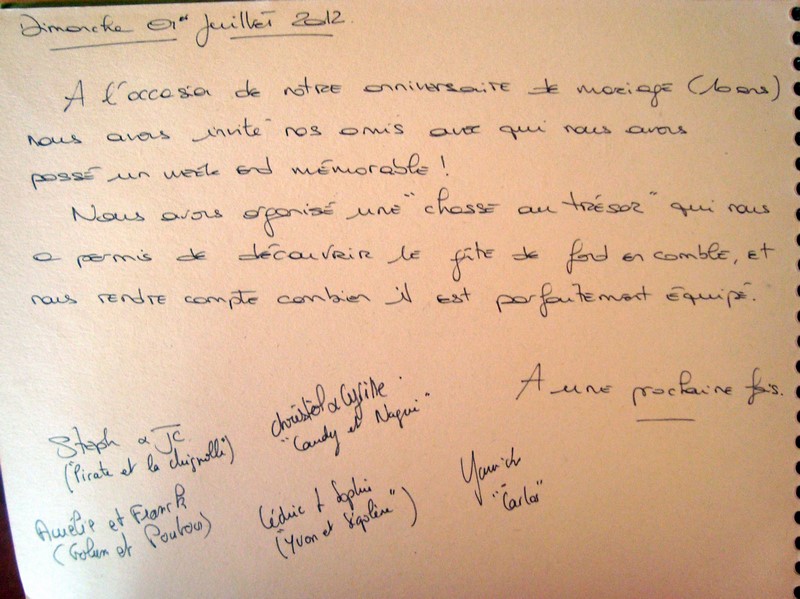 Dimanche 01er Juillet 2012.
A l'occasion de notre anniversaire de mariage (10 ans)
nous avons invité nos amis avec qui nous avons
passé un week end mémorable !
Nous avons organisé une "chasse au trésor" qui nous
a permis de découvrir le gîte de fond en comble, et
nous rendre compte combien il est parfaitement équipé.
A une prochaine fois.
Steph & JC
(Pirate et la
Christel & Cyrille.
"Candy et Nagui"
Aurélie et Franck
(Golum et
Cédric & Sophie
(Yvon et
Yannick
"Carlos"